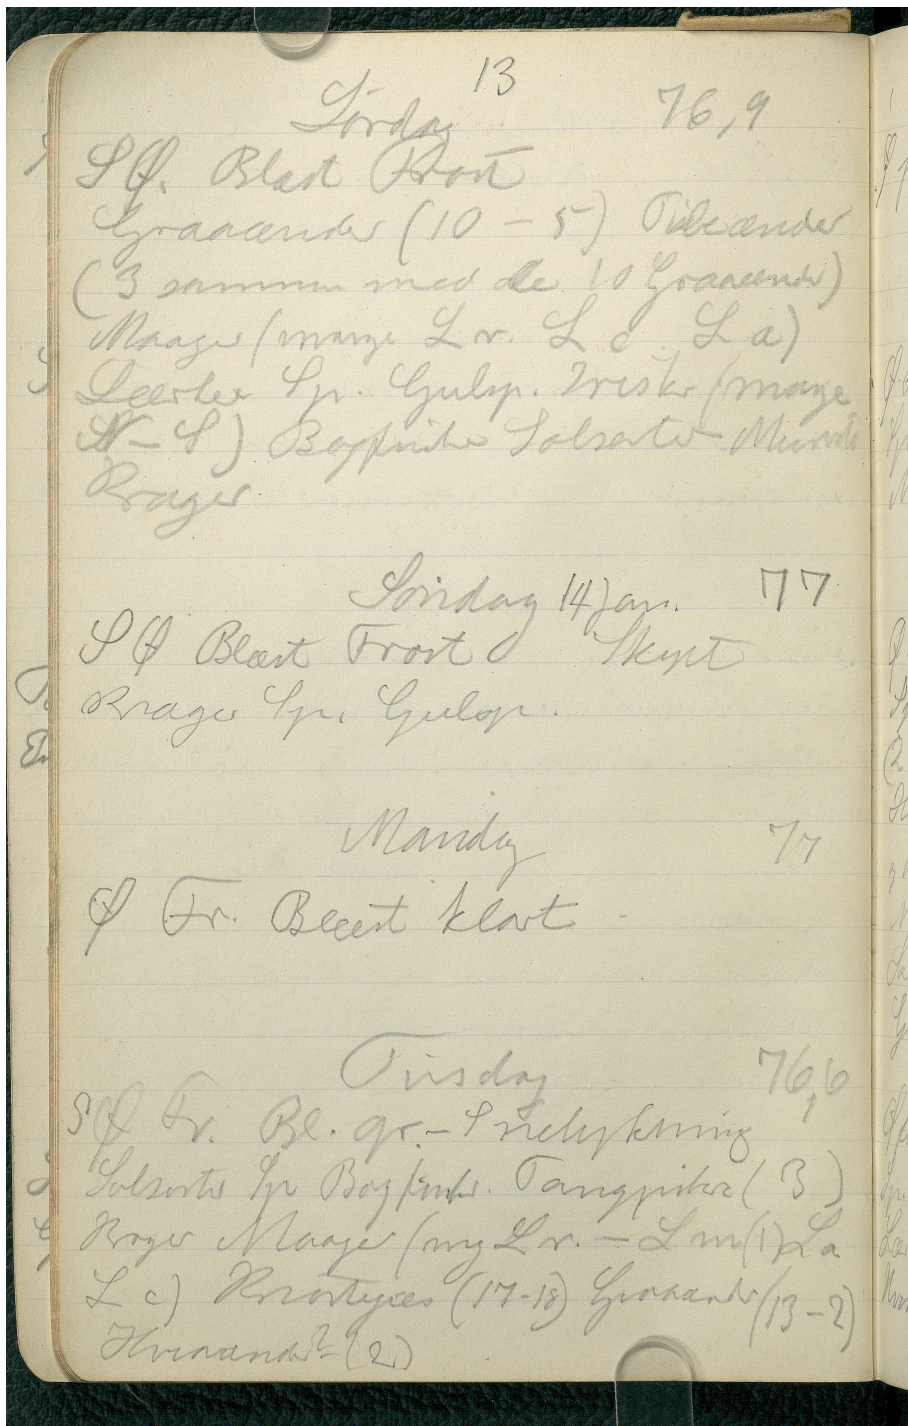 13
Lørdag 76,9
SØ. Blæst Frost
Graaænder (10 - 5) Pibeænder
(3 sammen med de 10 Graaænder)
Maager (mange L r. L c. L a)
Lærker Sp. Gulsp. Irisker (mange
N - S) Bogfinker Solsorter
Krager
Søndag 14 Jan. 77
SØ Blæst Frost Skyet
Krager Sp. Gulsp.
Mandag 77
Ø Fr. Blæst klart
Tirsdag 76,6
SØ Fr. Bl. gr. - Snelykning
Solsorter Sp Bogfinker. Tangpiber (3)
Krager Maager (mg L r. - L m (1) L a
L c) Knortegæs (17-18) Graaænder (13-2)
Hvinænder? (2)